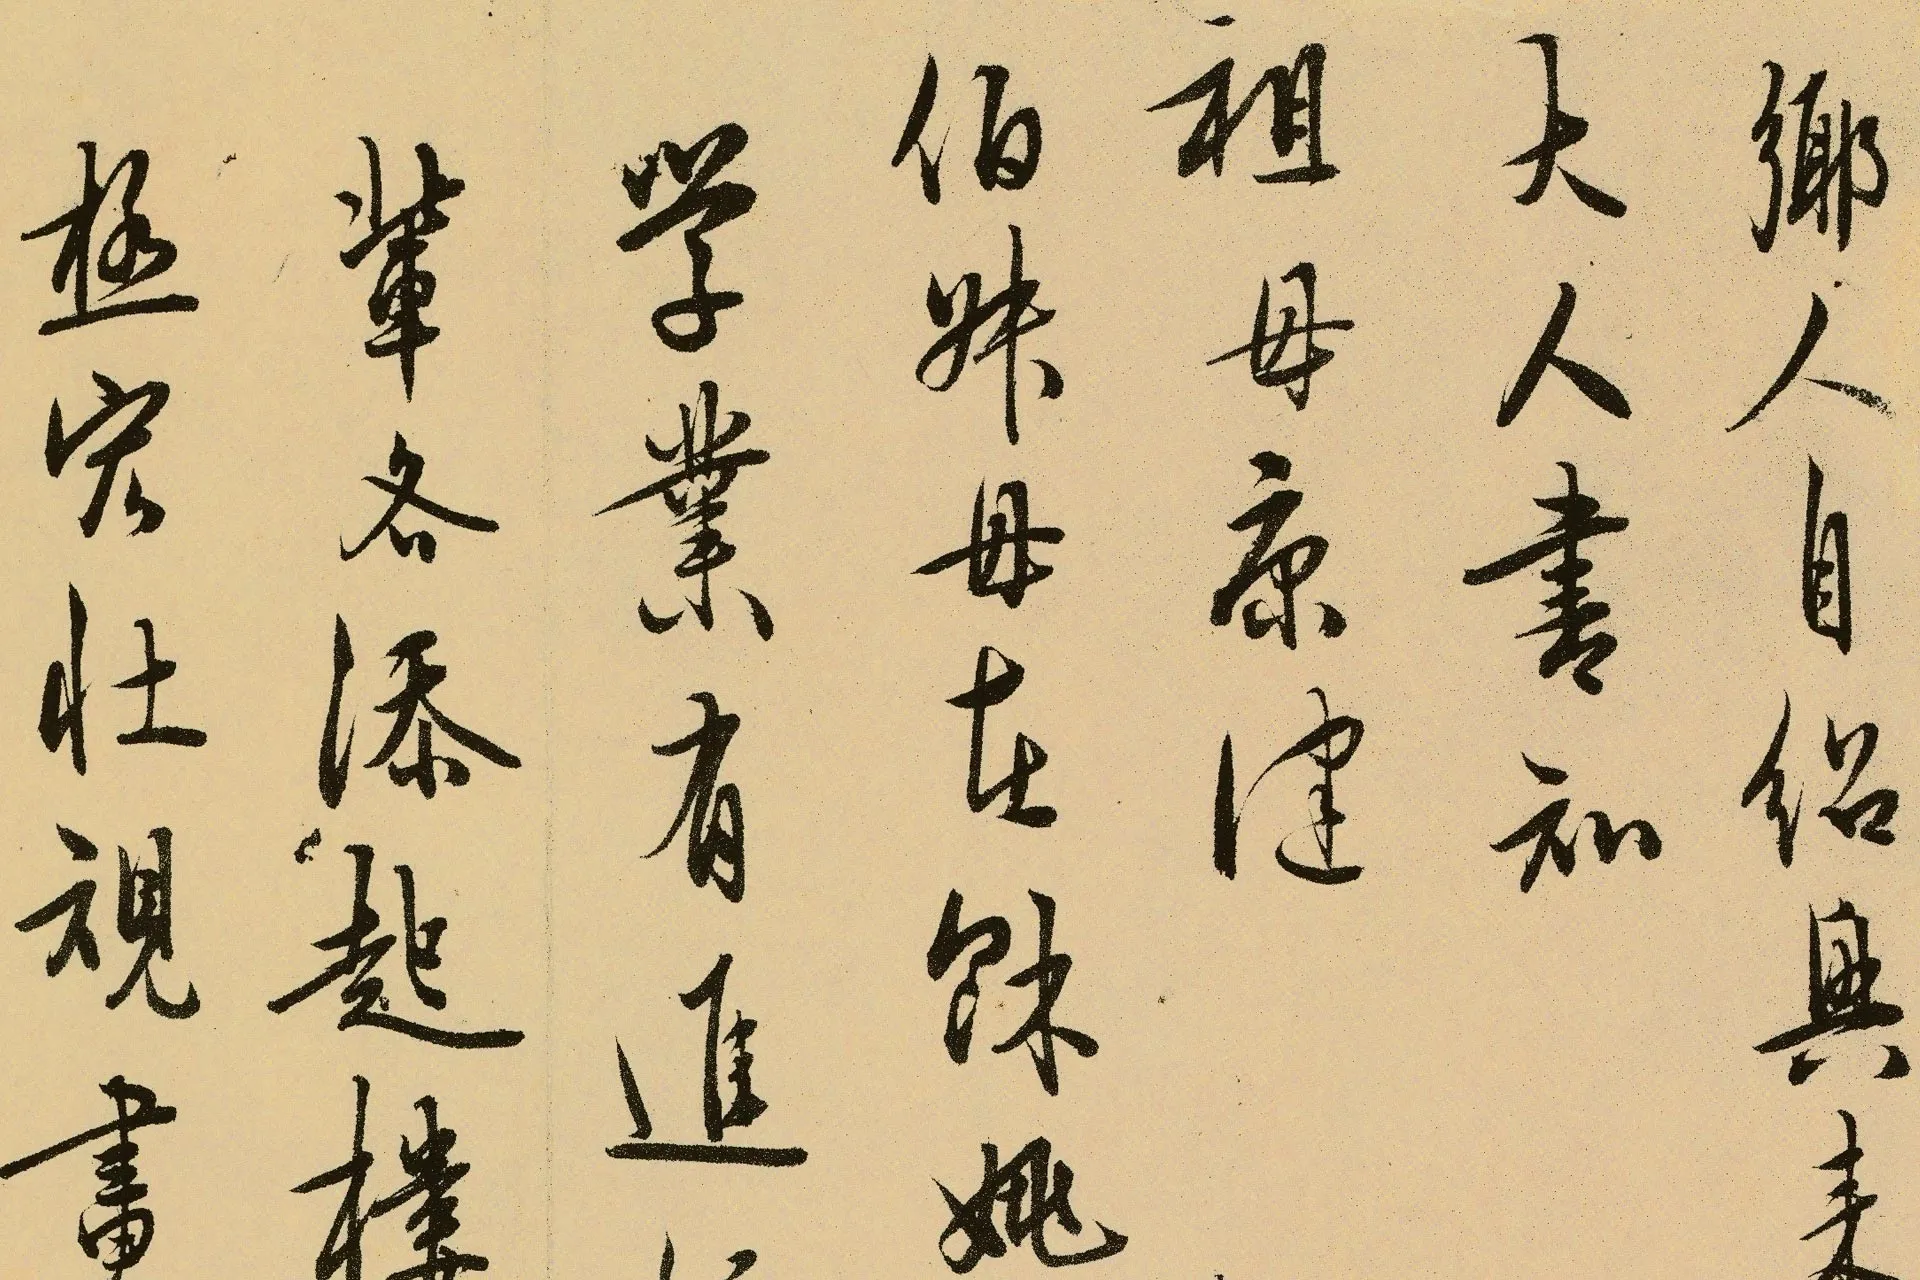 鄉人自紹興来
大人書知
祖母康健
伯姊母在餘姚
学業有進
輩各添起樓
極宏壯視畫